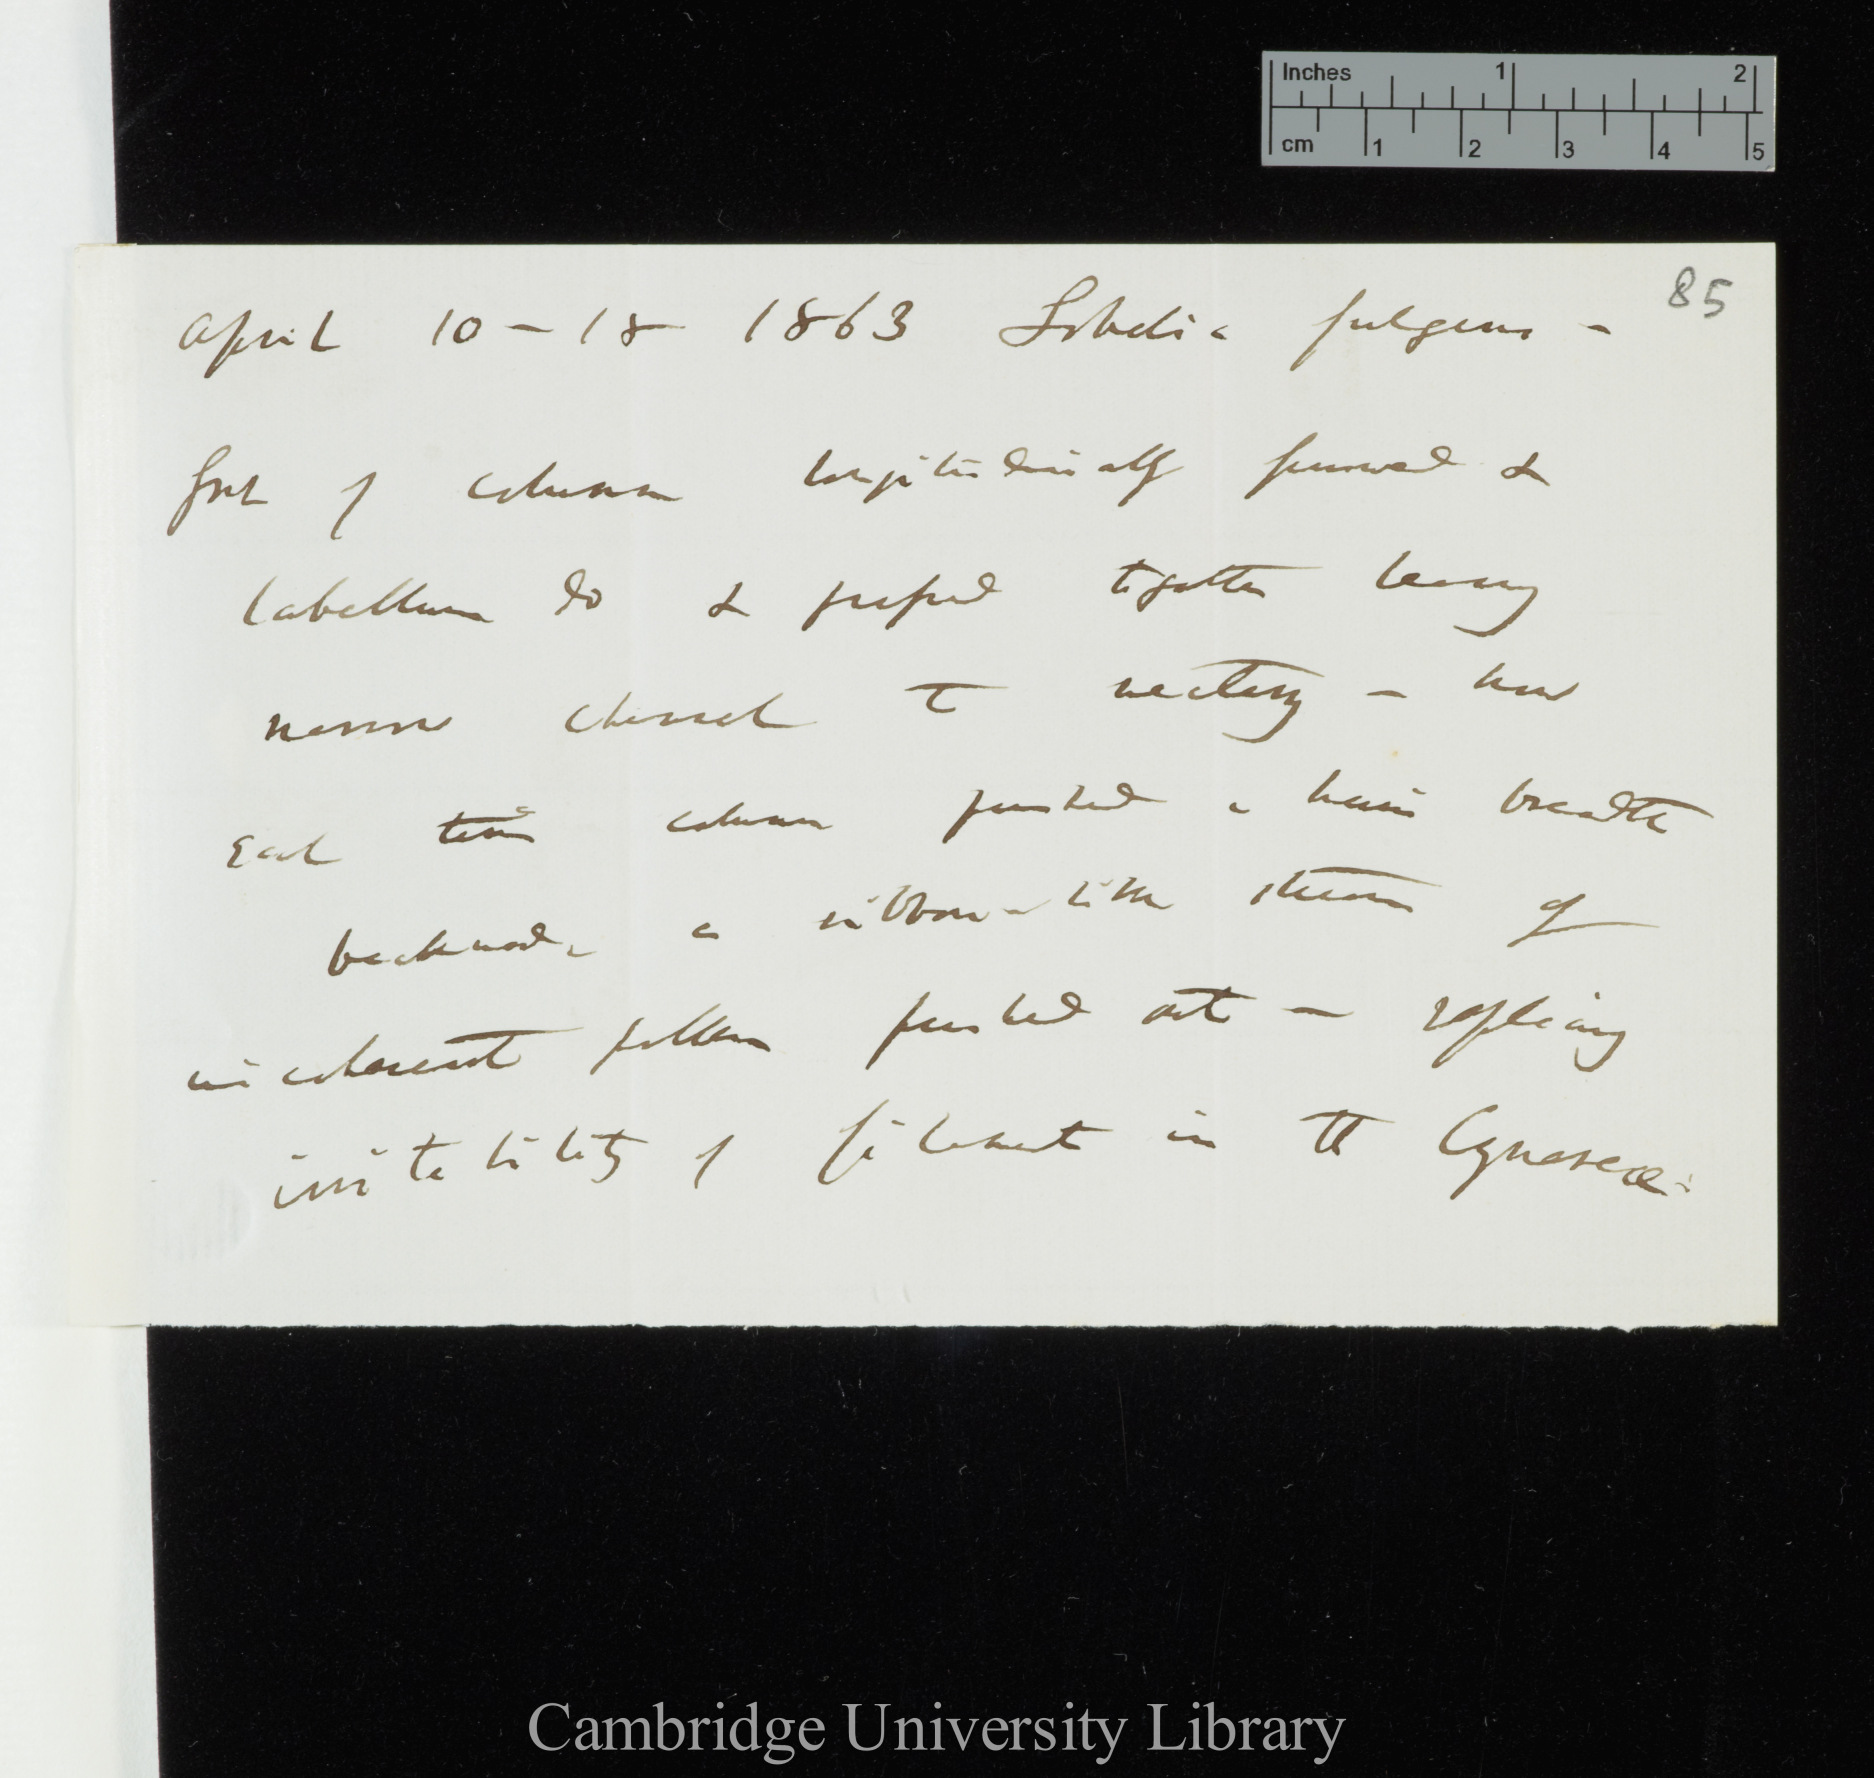 Inches 1 2
cm 1 2 3 4 5
85
April 10 - 18 1863 Lobelia fulgens -
front of column longitudinally furrowed &
labellum do & pressed together leaving
narrow channel to nectary - how
each time column pushed a hairs breadth
backwards a ribbon-like stream of
incoherent pollen pushed out - replacing
irritability of filament in the Cynareæ.
Cambridge University Library